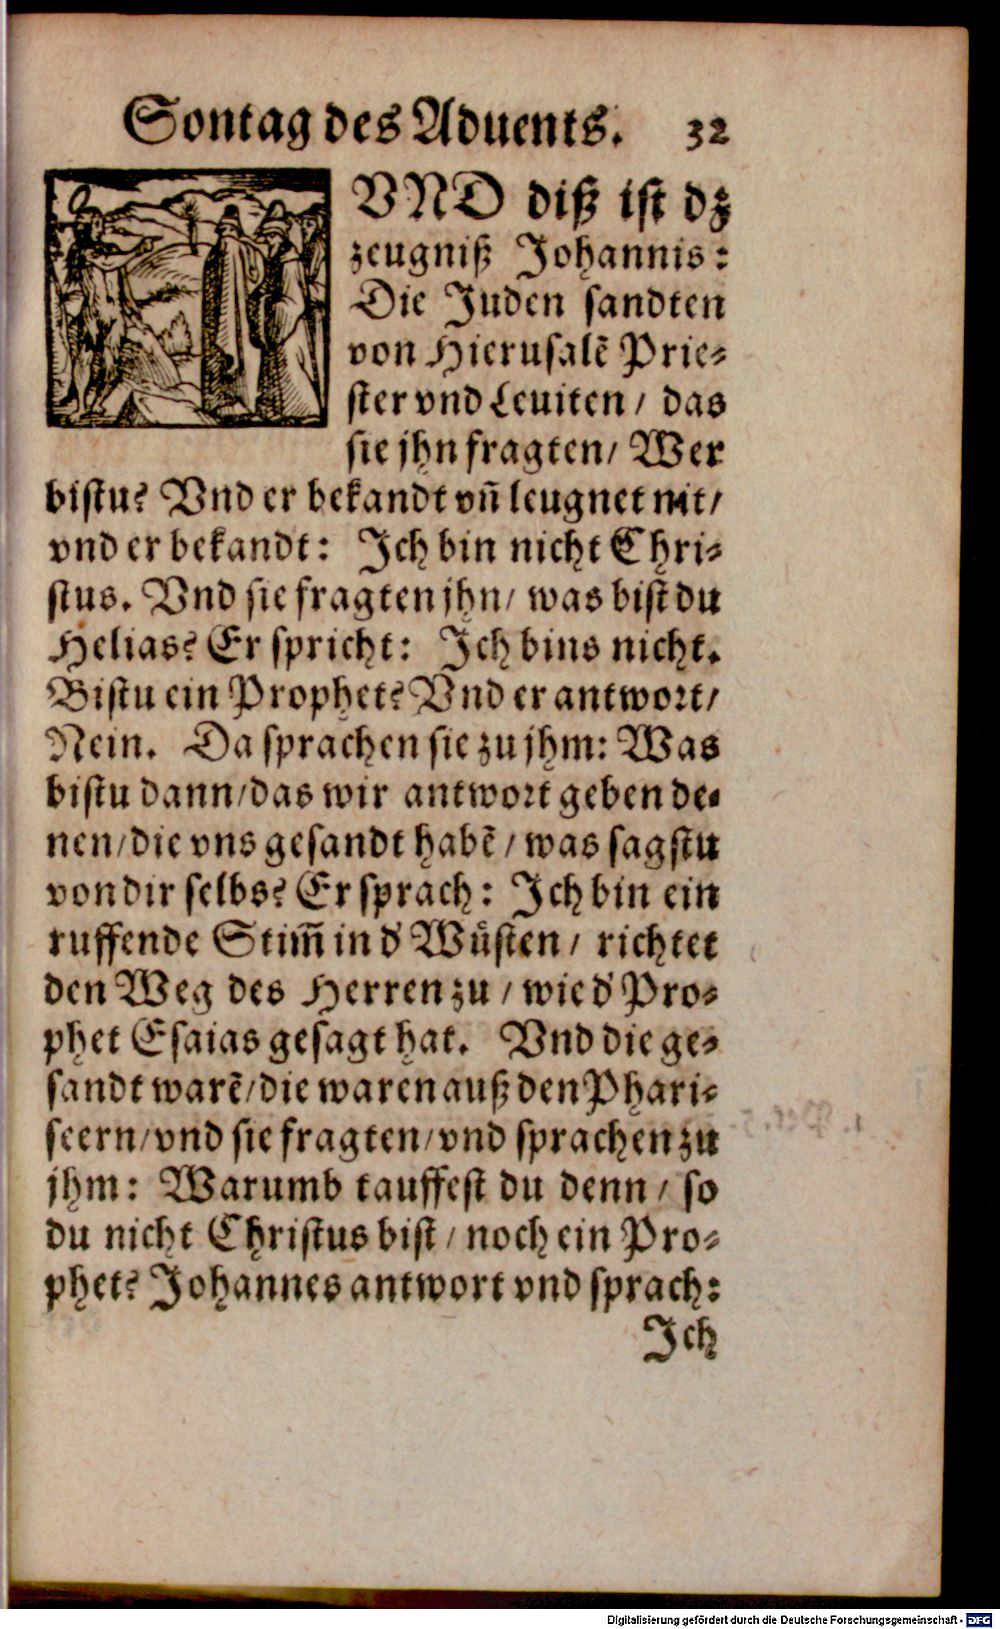 Sontag des Aduents. 32
VND diß ist dz
zeugniß Johannis:
Die Juden sandten
von Hierusalẽ Prie⸗
ster vnd Leuiten / das
sie jhn fragten / Wer
bistu? Vnd er bekandt vñ leugnet nit /
vnd er bekandt: Ich bin nicht Chri⸗
stus. Vnd sie fragten jhn / was bist du
Helias? Er spricht: Ich bins nicht.
Bistu ein Prophet? Vnd er antwort /
Nein. Da sprachen sie zu jhm: Was
bistu dann / das wir antwort geben de⸗
nen / die vns gesandt habẽ / was sagstu
von dir selbs? Er sprach: Ich bin ein
ruffende Stim̃ in d' Wuͤsten / richtet
den Weg des Herren zu / wie d' Pro⸗
phet Esaias gesagt hat. Vnd die ge⸗
sandt warẽ / die waren auß den Phari⸗
seern / vnd sie fragten / vnd sprachen zu
jhm: Warumb tauffest du denn / so
du nicht Christus bist / noch ein Pro⸗
phet? Johannes antwort vnd sprach:
Ich
Digitalisierung gefördert durch die Deutsche Forschungsgemeinschaft - DFG